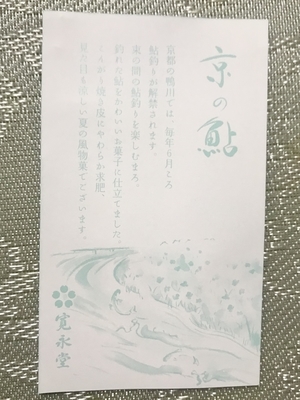 京の鮎
京都の鴨川では、毎年6月ころ
鮎釣りが解禁されます。
束の間の鮎釣りを楽しむまろ。
釣れた鮎をかわいいお菓子に仕立てました。
こんがり焼き皮にやわらか求肥。
見た目も涼しい夏の風物菓でございます。
寛永堂